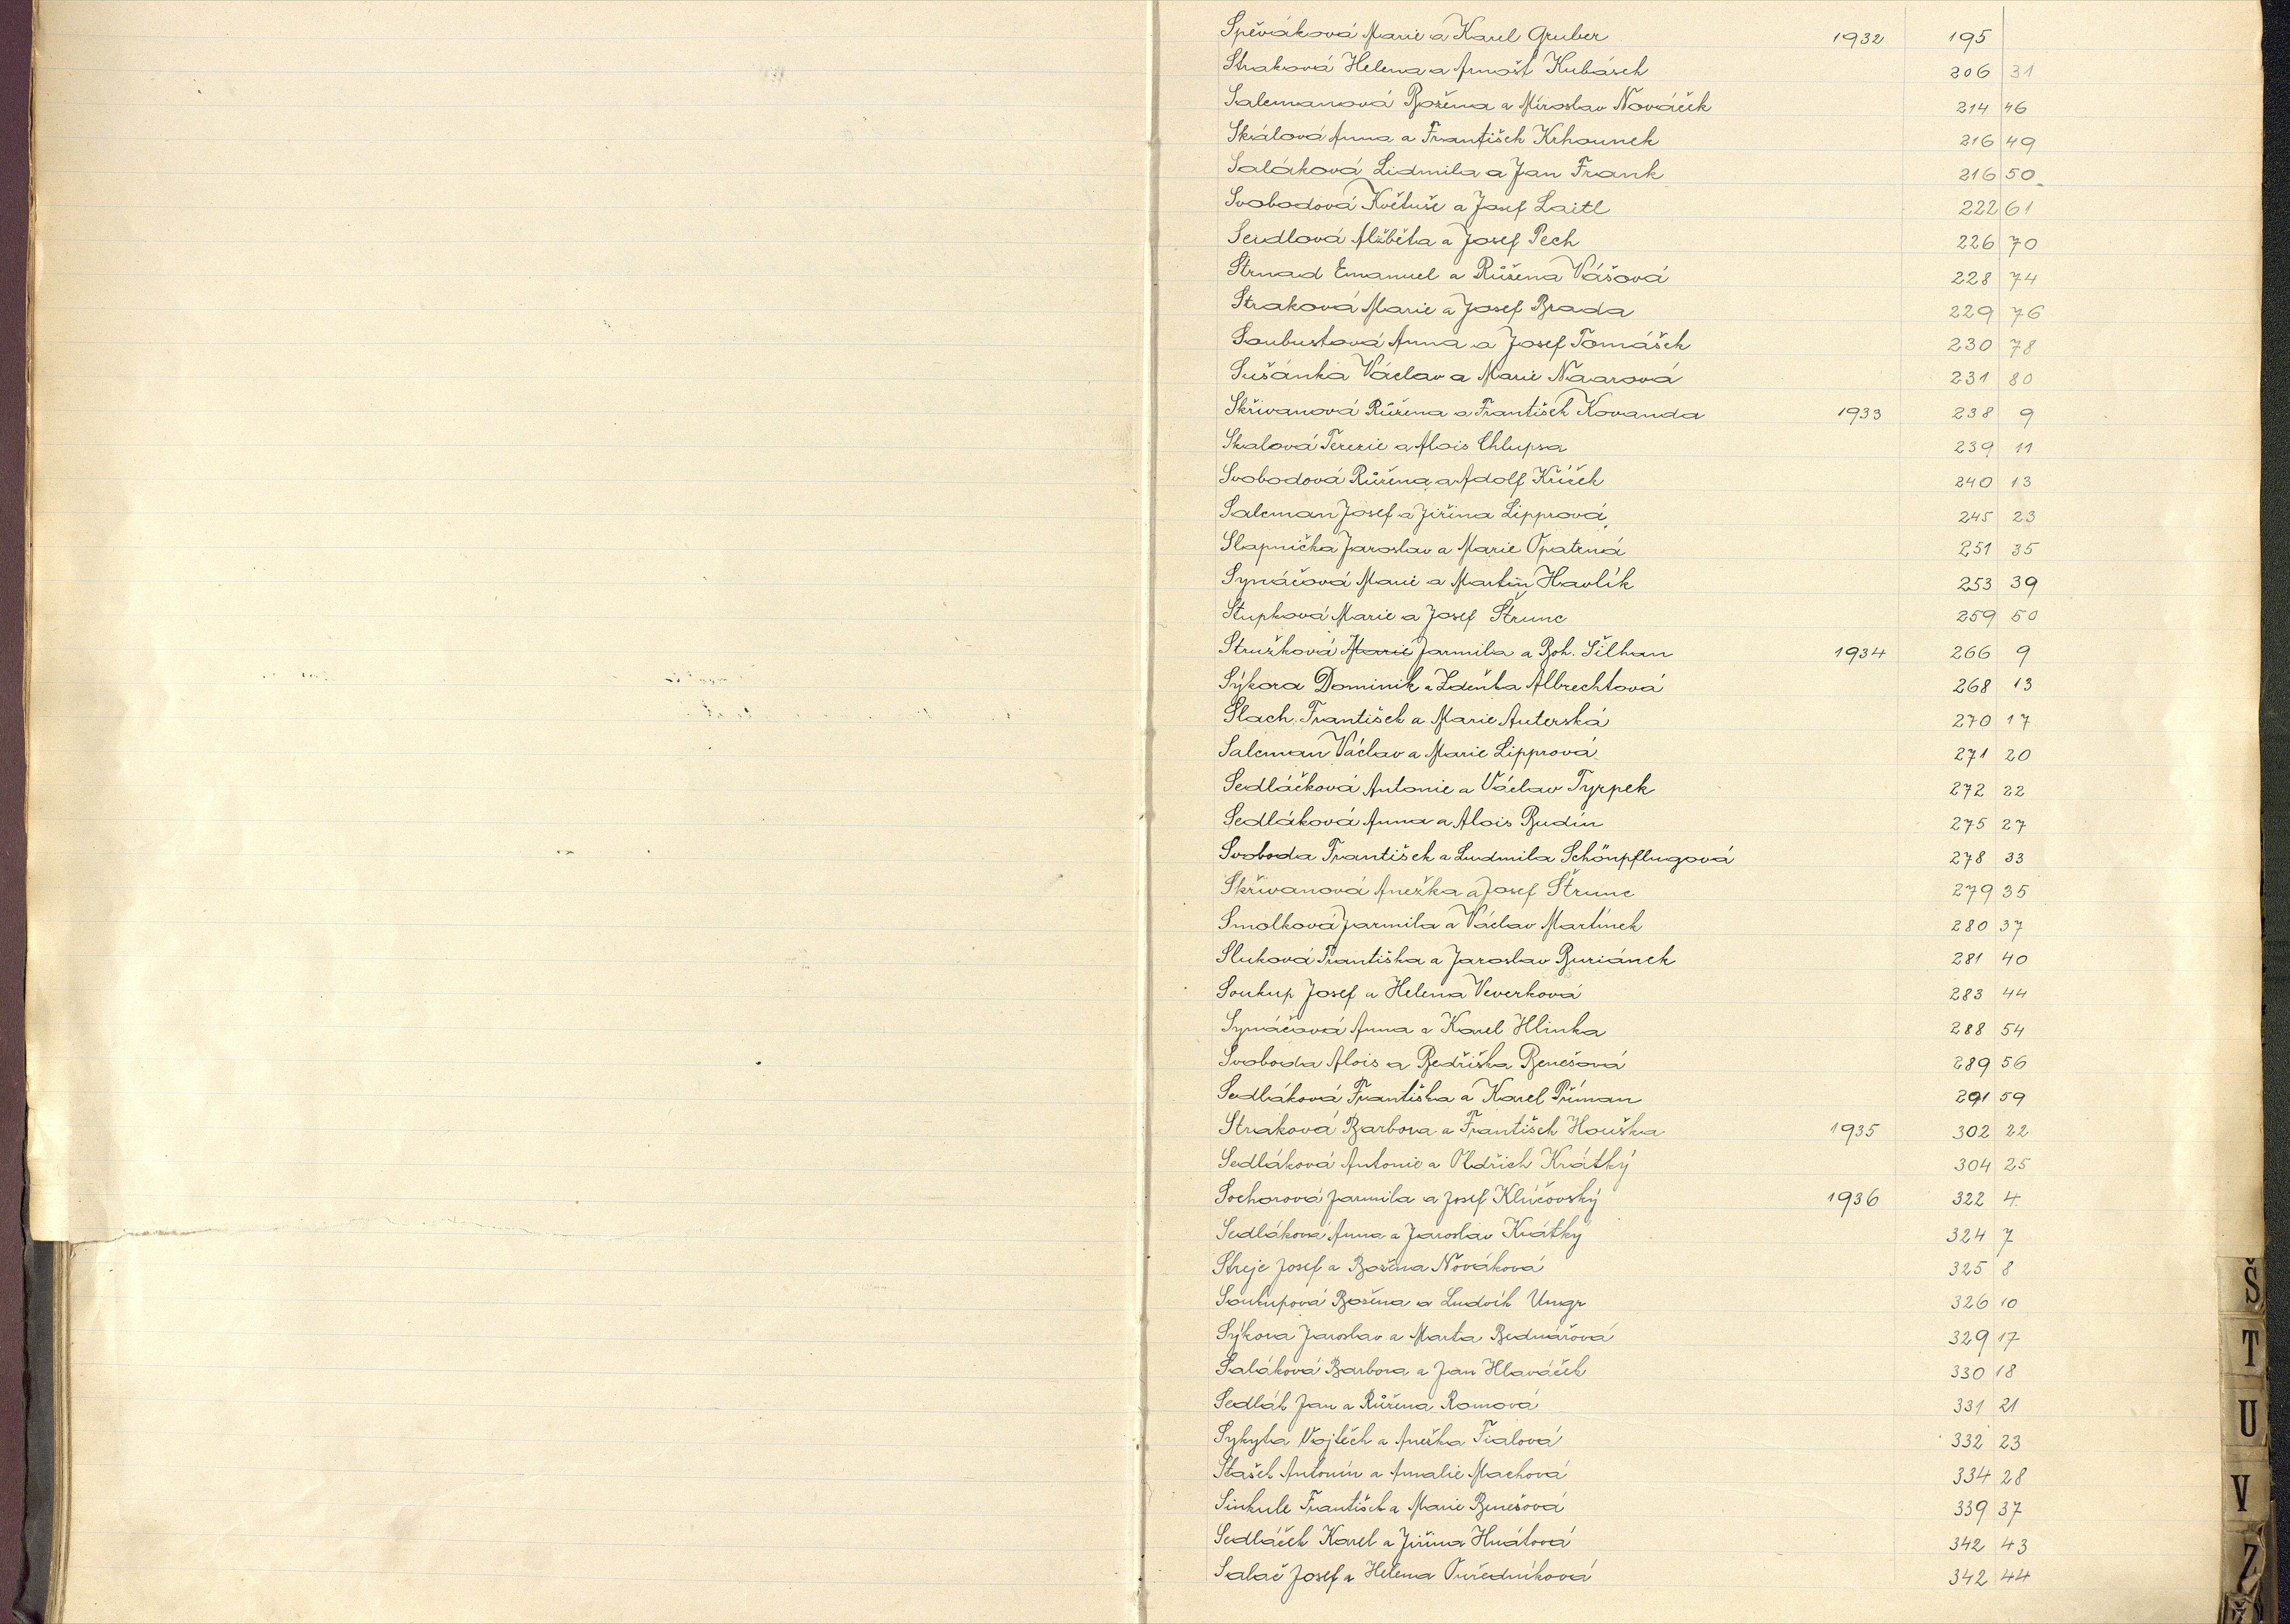 Spěváková Marie a Karel Gruber 1932 195
Straková Helena a Arnošt Kubásek 206 31
Salcmanová Božena a Miroslav Nováček 214 46
Skálová Anna a František Krhounek 216 49
Saláková Lidmila a Jan Frank 216 50
Svobodová Květuše a Josef Laitl 222 61
Seidlová Alžběta a Josef Pech 226 70
Strnad Emanuel a Růžena Vášová 228 74
Straková Marie a Josef Brada 229 76
Soubustová Anna a Josef Tomášek 230 78
Sušánka Václav a Marie Naarová 231 80
Skřivanová Růžena a František Kovanda 1933 238 9
Skalová Terezie a Alois Chlupsa 239 11
Svobodová Růžena a Adolf Kříček 240 13
Salcman Josef a Jiřina Lipprová 245 23
Slapnička Jaroslav a Marie Opatrná 251 35
Synáčová Marie a Martin Havlík 253 39
Stupková Marie a Josef Štrunc 259 50
Stružková Marie Jarmila a Boh. Šilhan 1934 266 9
Sýkora Dominik a Zdeňka Albrechtová 268 13
Slach František a Marie Auterská 270 17
Salcman Václav a Marie Lipprová 271 20
Sedláčková Antonie a Václav Tyrpek 272 22
Sedláková Anna a Alois Budín 275 27
Svoboda František a Ludmila Schönpflugová 278 33
Skřivanová Anežka a Josef Štrunc 279 35
Smolková Jarmila a Václav Martínek 280 37
Sluková Františka a Jaroslav Buriánek 281 40
Soukup Josef a Helena Veverková 283 44
Synáčová Anna a Karel Hlinka 288 54
Svoboda Alois a Bedřiška Benešová 289 56
Sedláková Františka a Karel Příman 291 59
Straková Barbora a František Houška 1935 302 22
Sedláková Antonie a Oldřich Krátký 304 25
Sochorová Jarmila a Josef Klíčovský 1936 322 4
Sedláková Anna a Jaroslav Krátký 324 7
Streje Josef a Božena Nováková 325 8
Soukupová Božena a Ludvík Ungr 326 10
Sýkora Jaroslav a Marta Bednářová 329 17
Saláková Barbora a Jan Hlaváček 330 18
Sedlák Jan a Růžena Romová 331 21
Sykyta Vojtěch a Anežka Fialová 332 23
Stašek Antonín a Amalie Machová 334 28
Sinkule František a Marie Benešová 339 37
Sedláček Karel a Jiřina Hnátová 342 43
Salač Josef a Helena Ouředníková 342 44
Š
T
U
V
Z
Ž